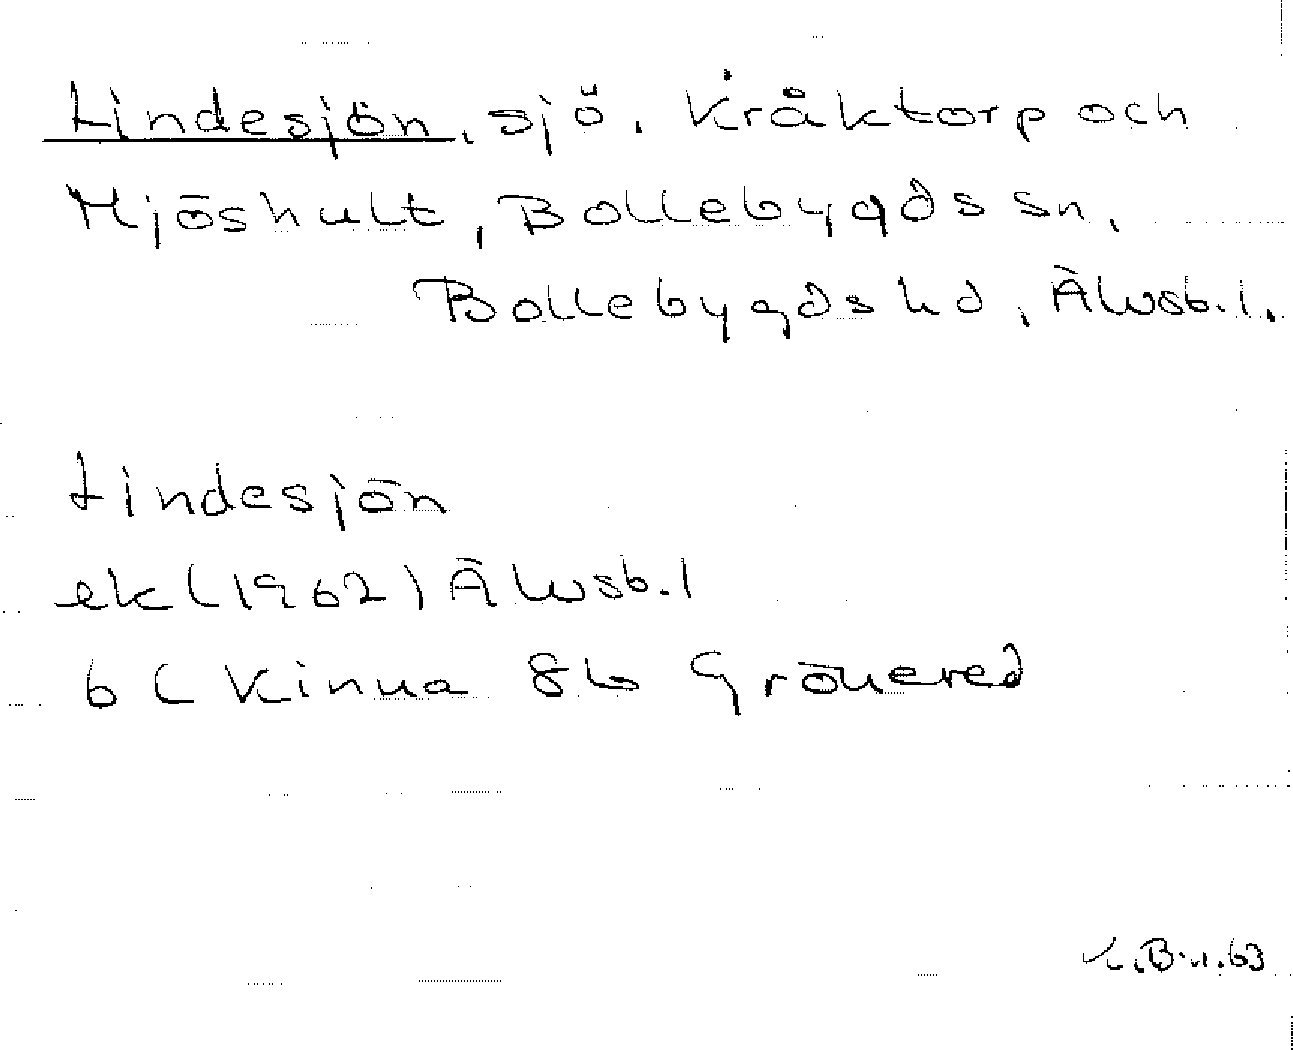 Lindesjön, sjö. Kråktorp och
Mjöshult, Bollebygds sn,
Bollebygds hd, Älvsb. l.
Lindesjön
ek (1962) Älvsb. l
6 C Kinna 8b Grönered
L.B-n.63